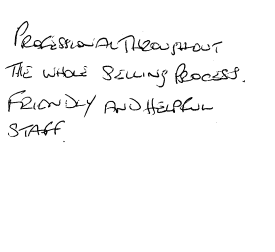 PROFESSIONAL THROUGHOUT
THE WHOLE SELLING PROCESS.
FRIENDLY AND HELPFUL
STAFF.